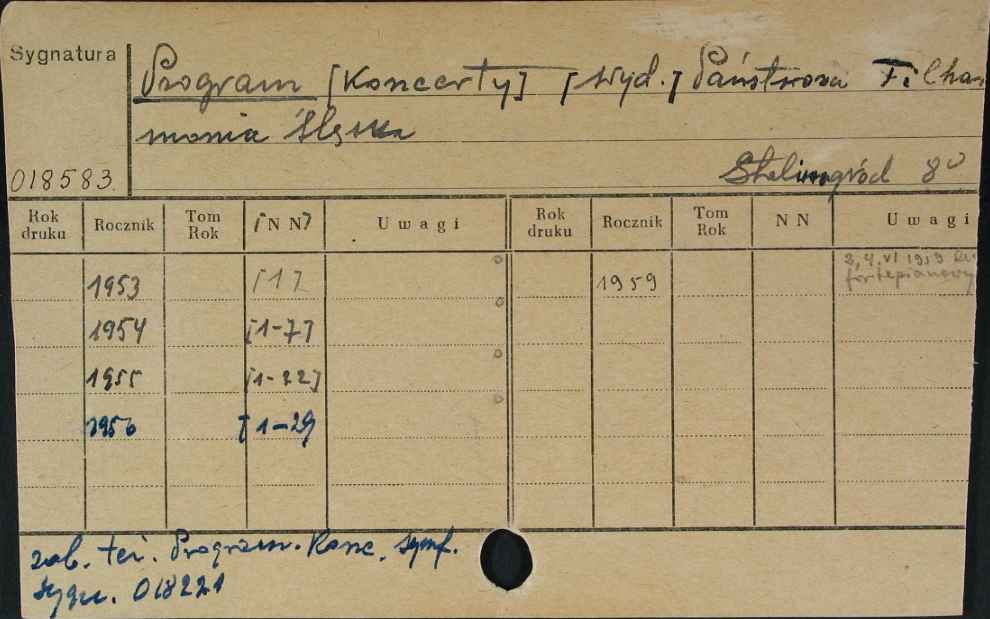 Sygnatura
Program [Koncerty] [Wyd.] Państwowa Filhar
monia Śląska
018583. Stalinogród 8⁰
Rok druku Rocznik Tom Rok [NN] Uwagi Rok druku Rocznik Tom Rok NN Uwagi
1953 [1] 1959 3, 4. VI 1959
fortepianowy
1954 [1-7]
1955 [1-22]
1956 [1-29
zob. też. Program. Konc. symf.
sygn. 018221